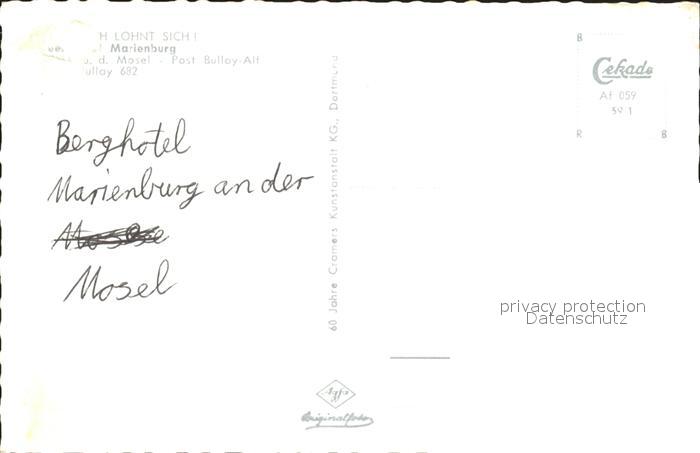 H LOHNT SICH!
Marienburg
d. Mosel - Post Bullay-Alf
ullay 682
Berghotel
Marienburg an der
Mosel
60 Jahre Cramers Kunstanstalt KG., Dortmund
B
Cekade
Af 059
59 1
R B
privacy protection
Datenschutz
Agfa
Originalfoto